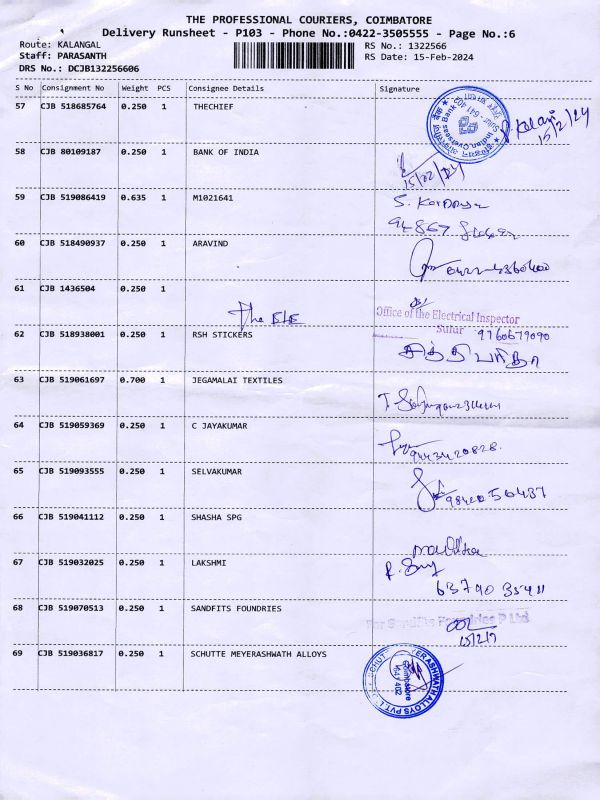 THE PROFESSIONAL COURIERS, COIMBATORE
Delivery Runsheet - P103 - Phone No.:0422-3505555 - Page No.:6
Route: KALANGAL RS No.: 1322566
Staff: PARASANTH RS Date: 15-Feb-2024
DRS No.: DCJB132256606
S No Consignment No Weight PCS Consignee Details Signature
57 CJB 518685764 0.250 1 THECHIEF
Indian Overseas Bank
15/2/24
58 CJB 80109187 0.250 1 BANK OF INDIA
15/02/24
59 CJB 519086419 0.635 1 M1021641
60 CJB 518490937 0.250 1 ARAVIND
61 CJB 1436504 0.250 1
The EIE
Office of the Electrical Inspector
Sulur
62 CJB 518938001 0.250 1 RSH STICKERS
9760679090
63 CJB 519061697 0.700 1 JEGAMALAI TEXTILES
64 CJB 519059369 0.250 1 C JAYAKUMAR
9443420828.
65 CJB 519093555 0.250 1 SELVAKUMAR
9842056437
66 CJB 519041112 0.250 1 SHASHA SPG
67 CJB 519032025 0.250 1 LAKSHMI
63790 35411
68 CJB 519070513 0.250 1 SANDFITS FOUNDRIES
For Sandfits Foundries P Ltd
69 CJB 519036817 0.250 1 SCHUTTE MEYERASHWATH ALLOYS